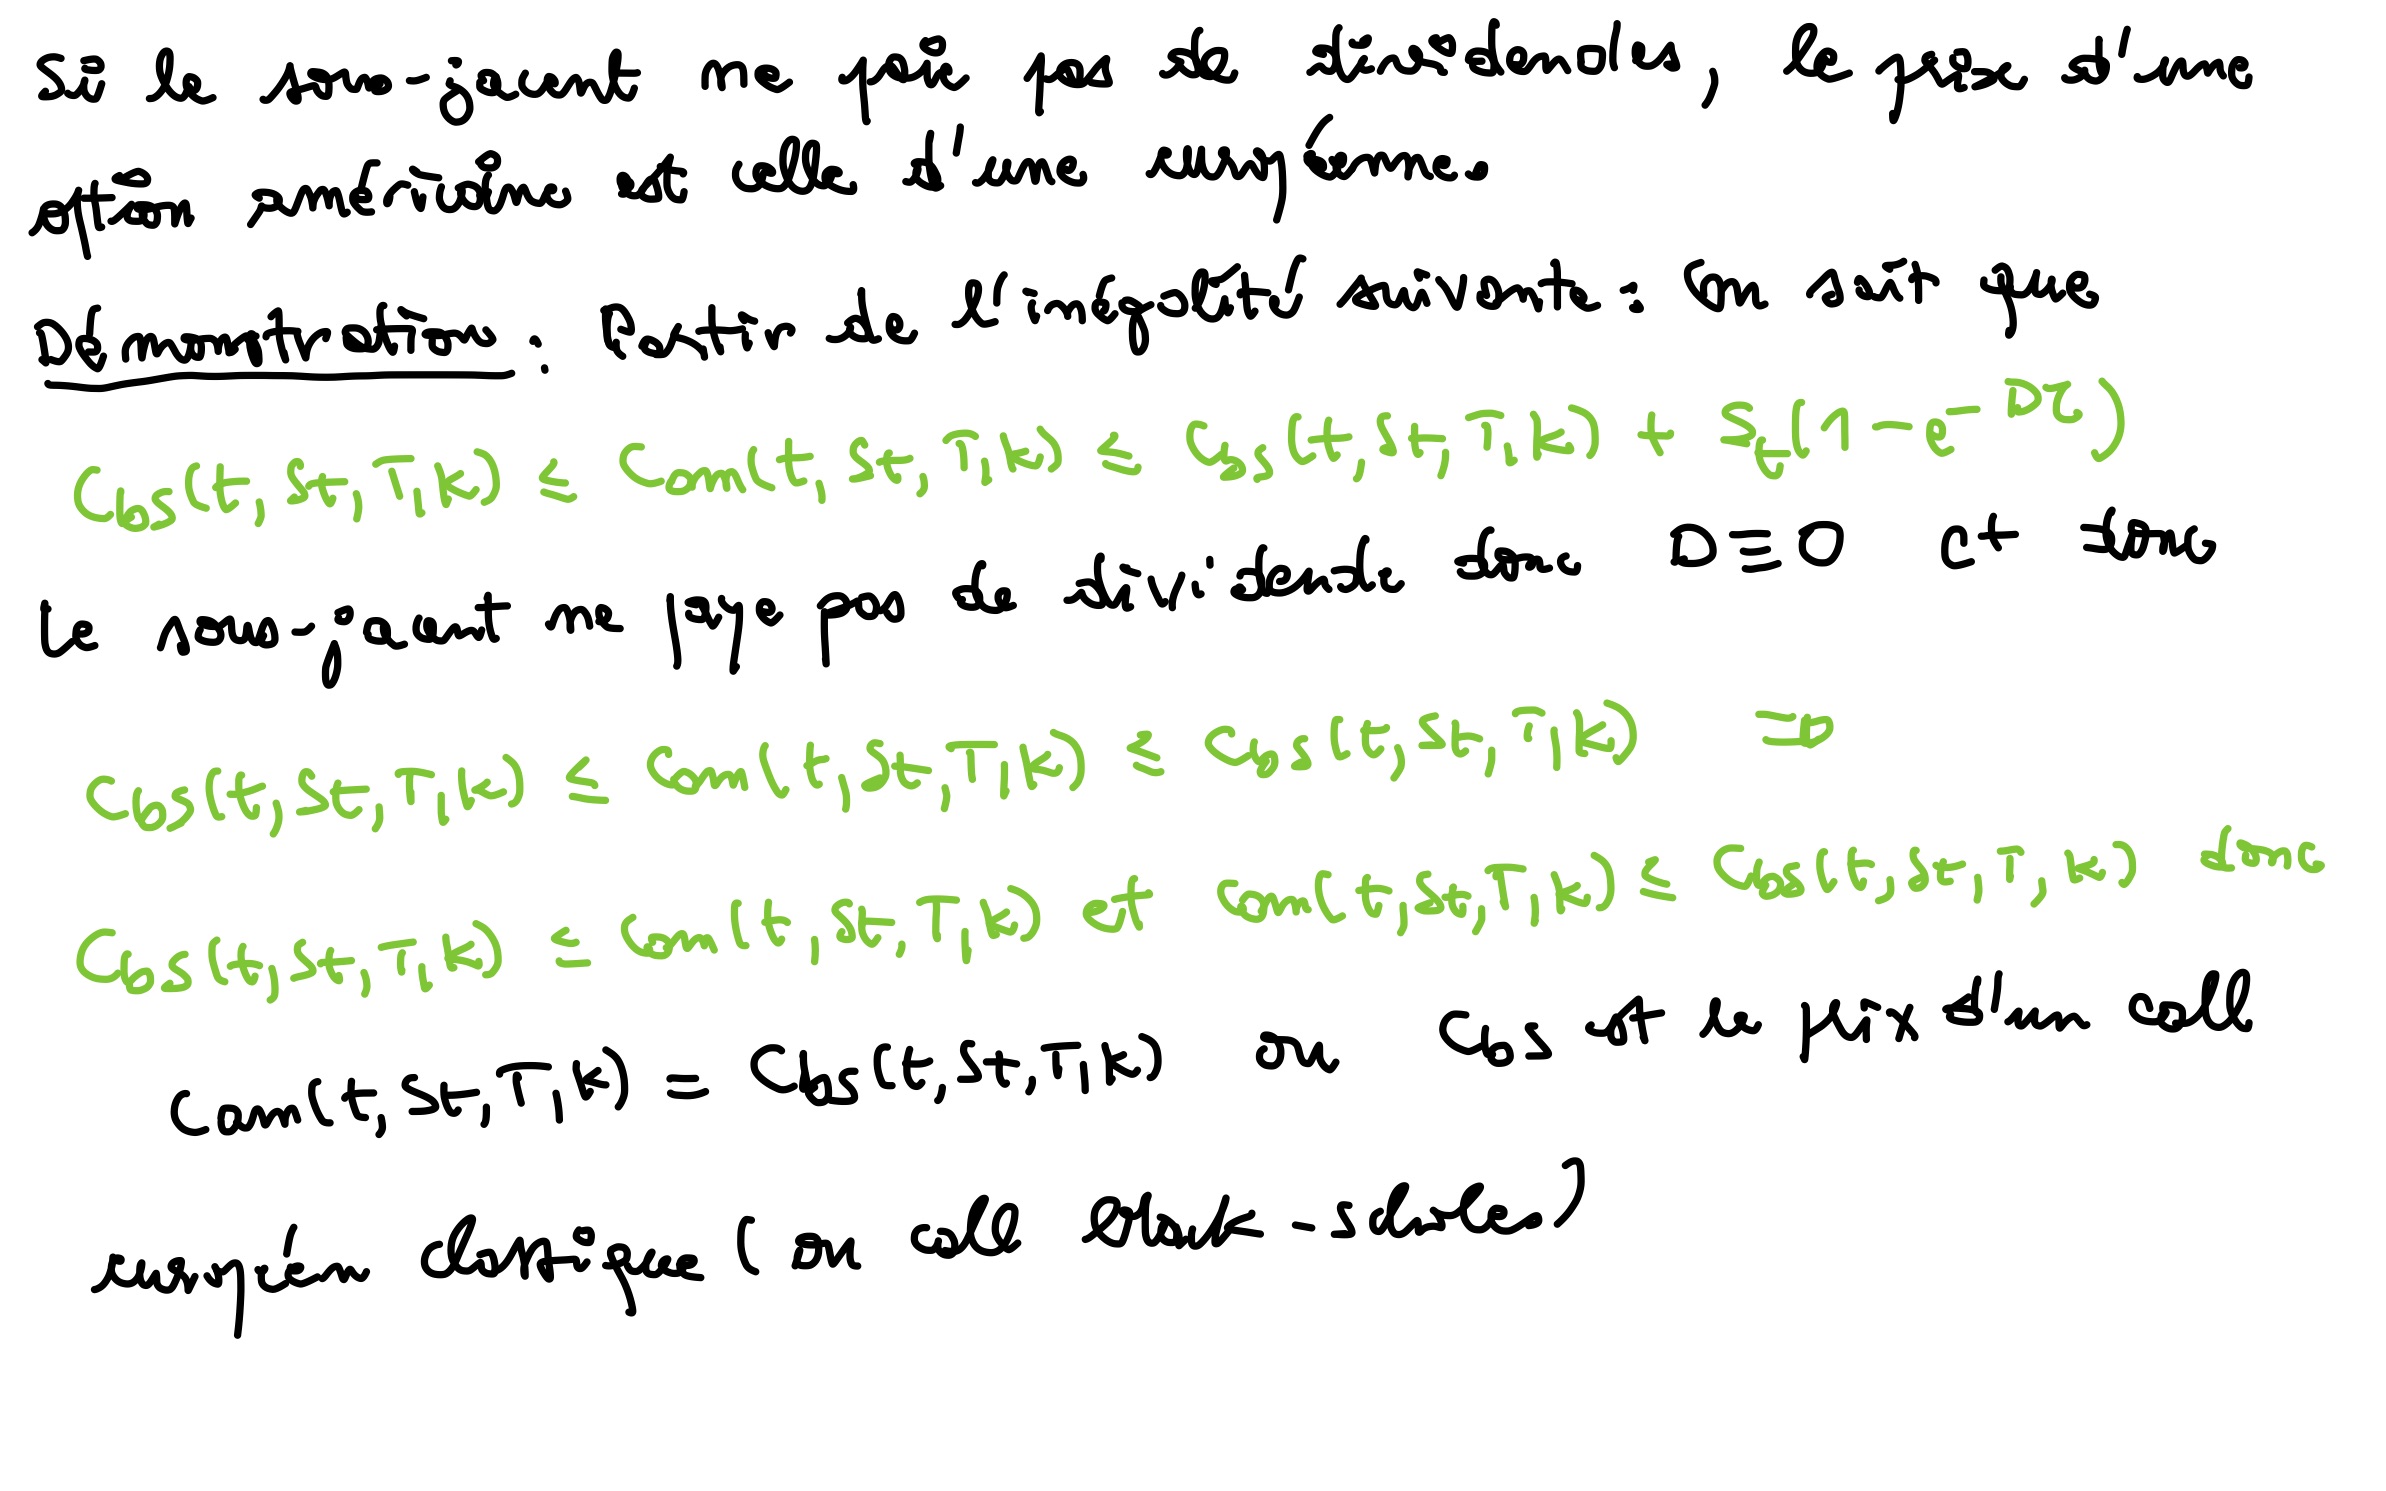 Si le sous-jacent ne paie pas de dividendes, le prix d'une
option américaine est celle d'une européenne.
Démonstration : Partir de l'inégalité suivante : On sait que
C_bs(t, St, T, k) ≤ Cam(t, St, T, k) ≤ C_bs(t, St, T, k) + S_t(1 - e^{-Dτ})
Le sous-jacent ne paye pas de dividende donc D ≡ 0 et donc
C_bs(t, St, T, k) ≤ Cam(t, St, T, k) ≤ C_bs(t, St, T, k) ⇒
C_bs(t, St, T, k) ≤ Cam(t, St, T, k) et Cam(t, St, T, k) ≤ C_bs(t, St, T, k) donc
Cam(t, St, T, k) = C_bs(t, St, T, k) où C_bs est le prix d'un call
européen classique (ou call Black-Scholes)